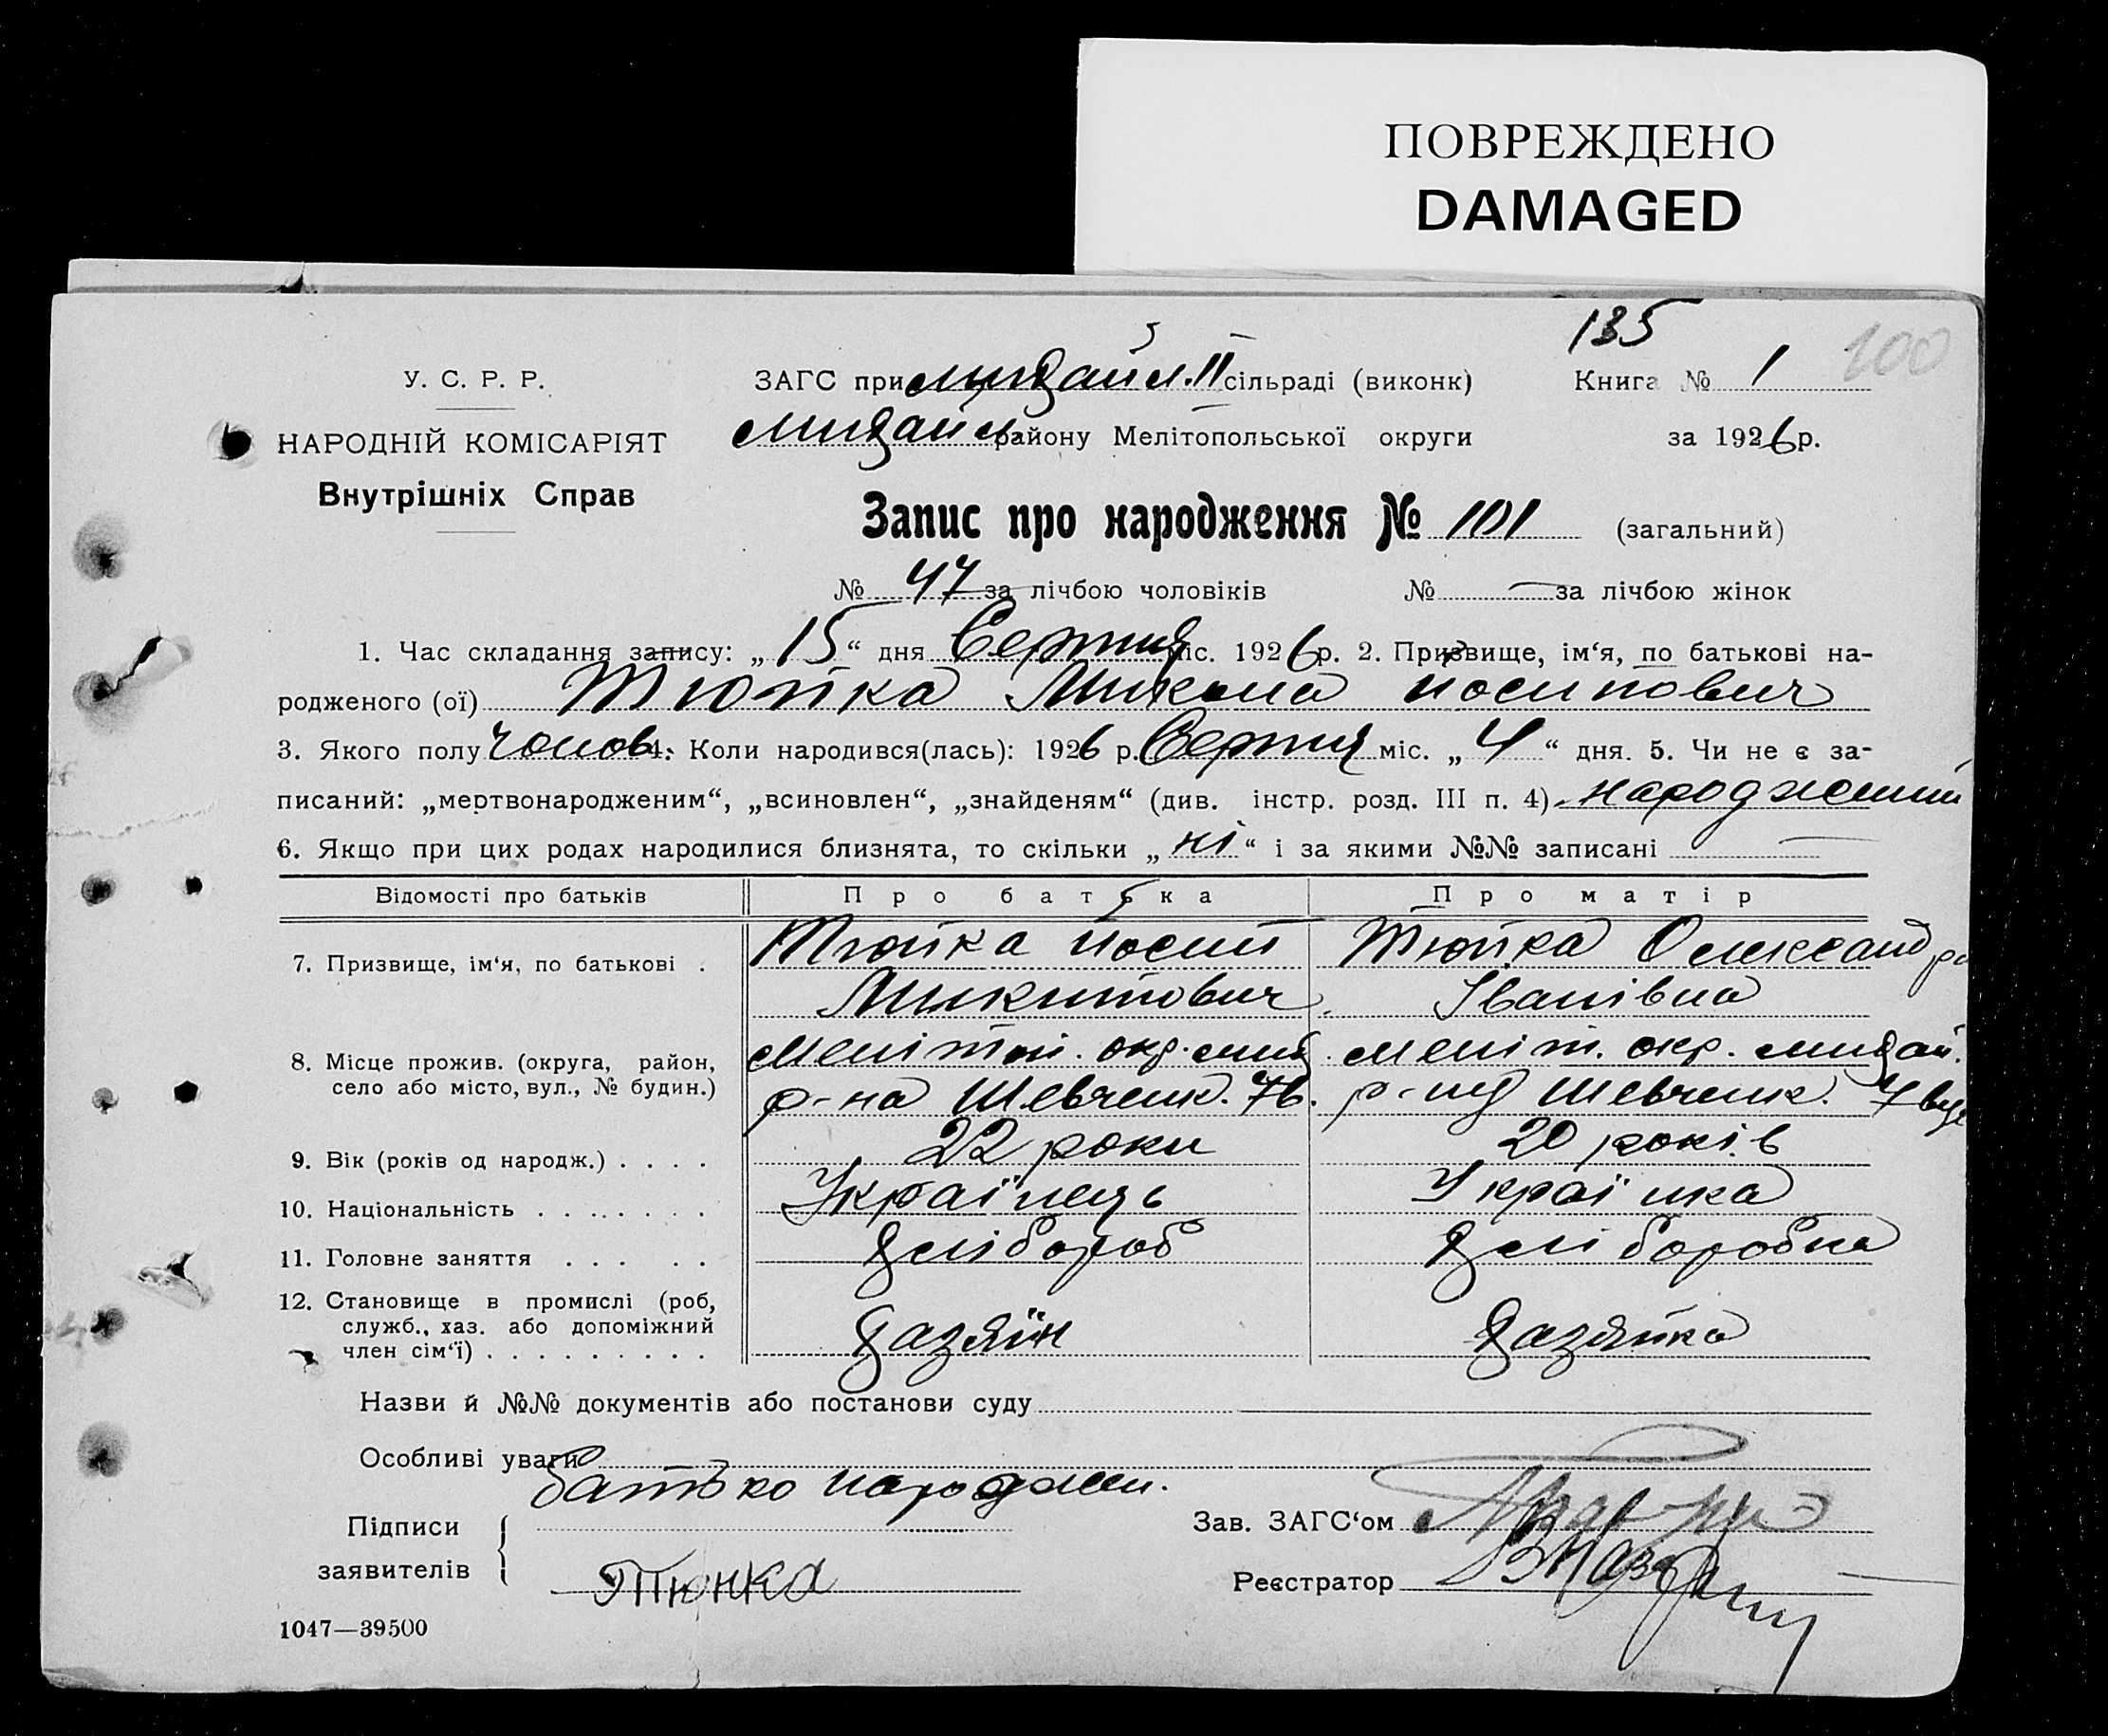 ПОВРЕЖДЕНО
DAMAGED
135
100
У. С. Р. Р.
ЗАГС при Михайл. II сільраді (виконк)
Книга № 1
НАРОДНІЙ КОМІСАРІЯТ
Михайл. району Мелітопольської округи
за 1926 р.
Внутрішніх Справ
Запис про народження № 101 (загальний)
№ 47 за лічбою чоловіків № — за лічбою жінок
1. Час складання запису: „15“ дня Серпня міс. 1926 р. 2. Призвище, ім‘я, по батькові на-
родженого (ої) Тюпка Микола Йосипович
3. Якого полу чолов. 4. Коли народився(лась): 1926 р. Серпня міс. „4“ дня. 5. Чи не є за-
писаний: „мертвонародженим“, „всиновлен“, „знайденям“ (див. інстр. розд. III п. 4) народжений
6. Якщо при цих родах народилися близнята, то скільки „ні“ і за якими №№ записані —
Відомості про батьків Про батька Про матір
7. Призвище, ім‘я, по батькові . Тюпка Йосип Тюпка Олександра
Микитович Іванівна
8. Місце прожив. (округа, район, Меліт. окр. Мих. Меліт. окр. Михай.
село або місто, вул., № будин.) р-на Шевченк. 7в. р-ну Шевченк. 7 вул
9. Вік (років од народж.) . . . . 22 роки 20 років
10. Національність . . . . . . . . Українець Українка
11. Головне заняття . . . . . Хлібороб Хліборобка
12. Становище в промислі (роб,
служб., хаз. або допоміжний
член сім‘ї) . . . . . . . . . Хазяїн Хазяйка
Назви й №№ документів або постанови суду
Особливі уваги
батько народжен.
Підписи
заявителів
Зав. ЗАГС‘ом
Тюпка
Реєстратор
1047—39500